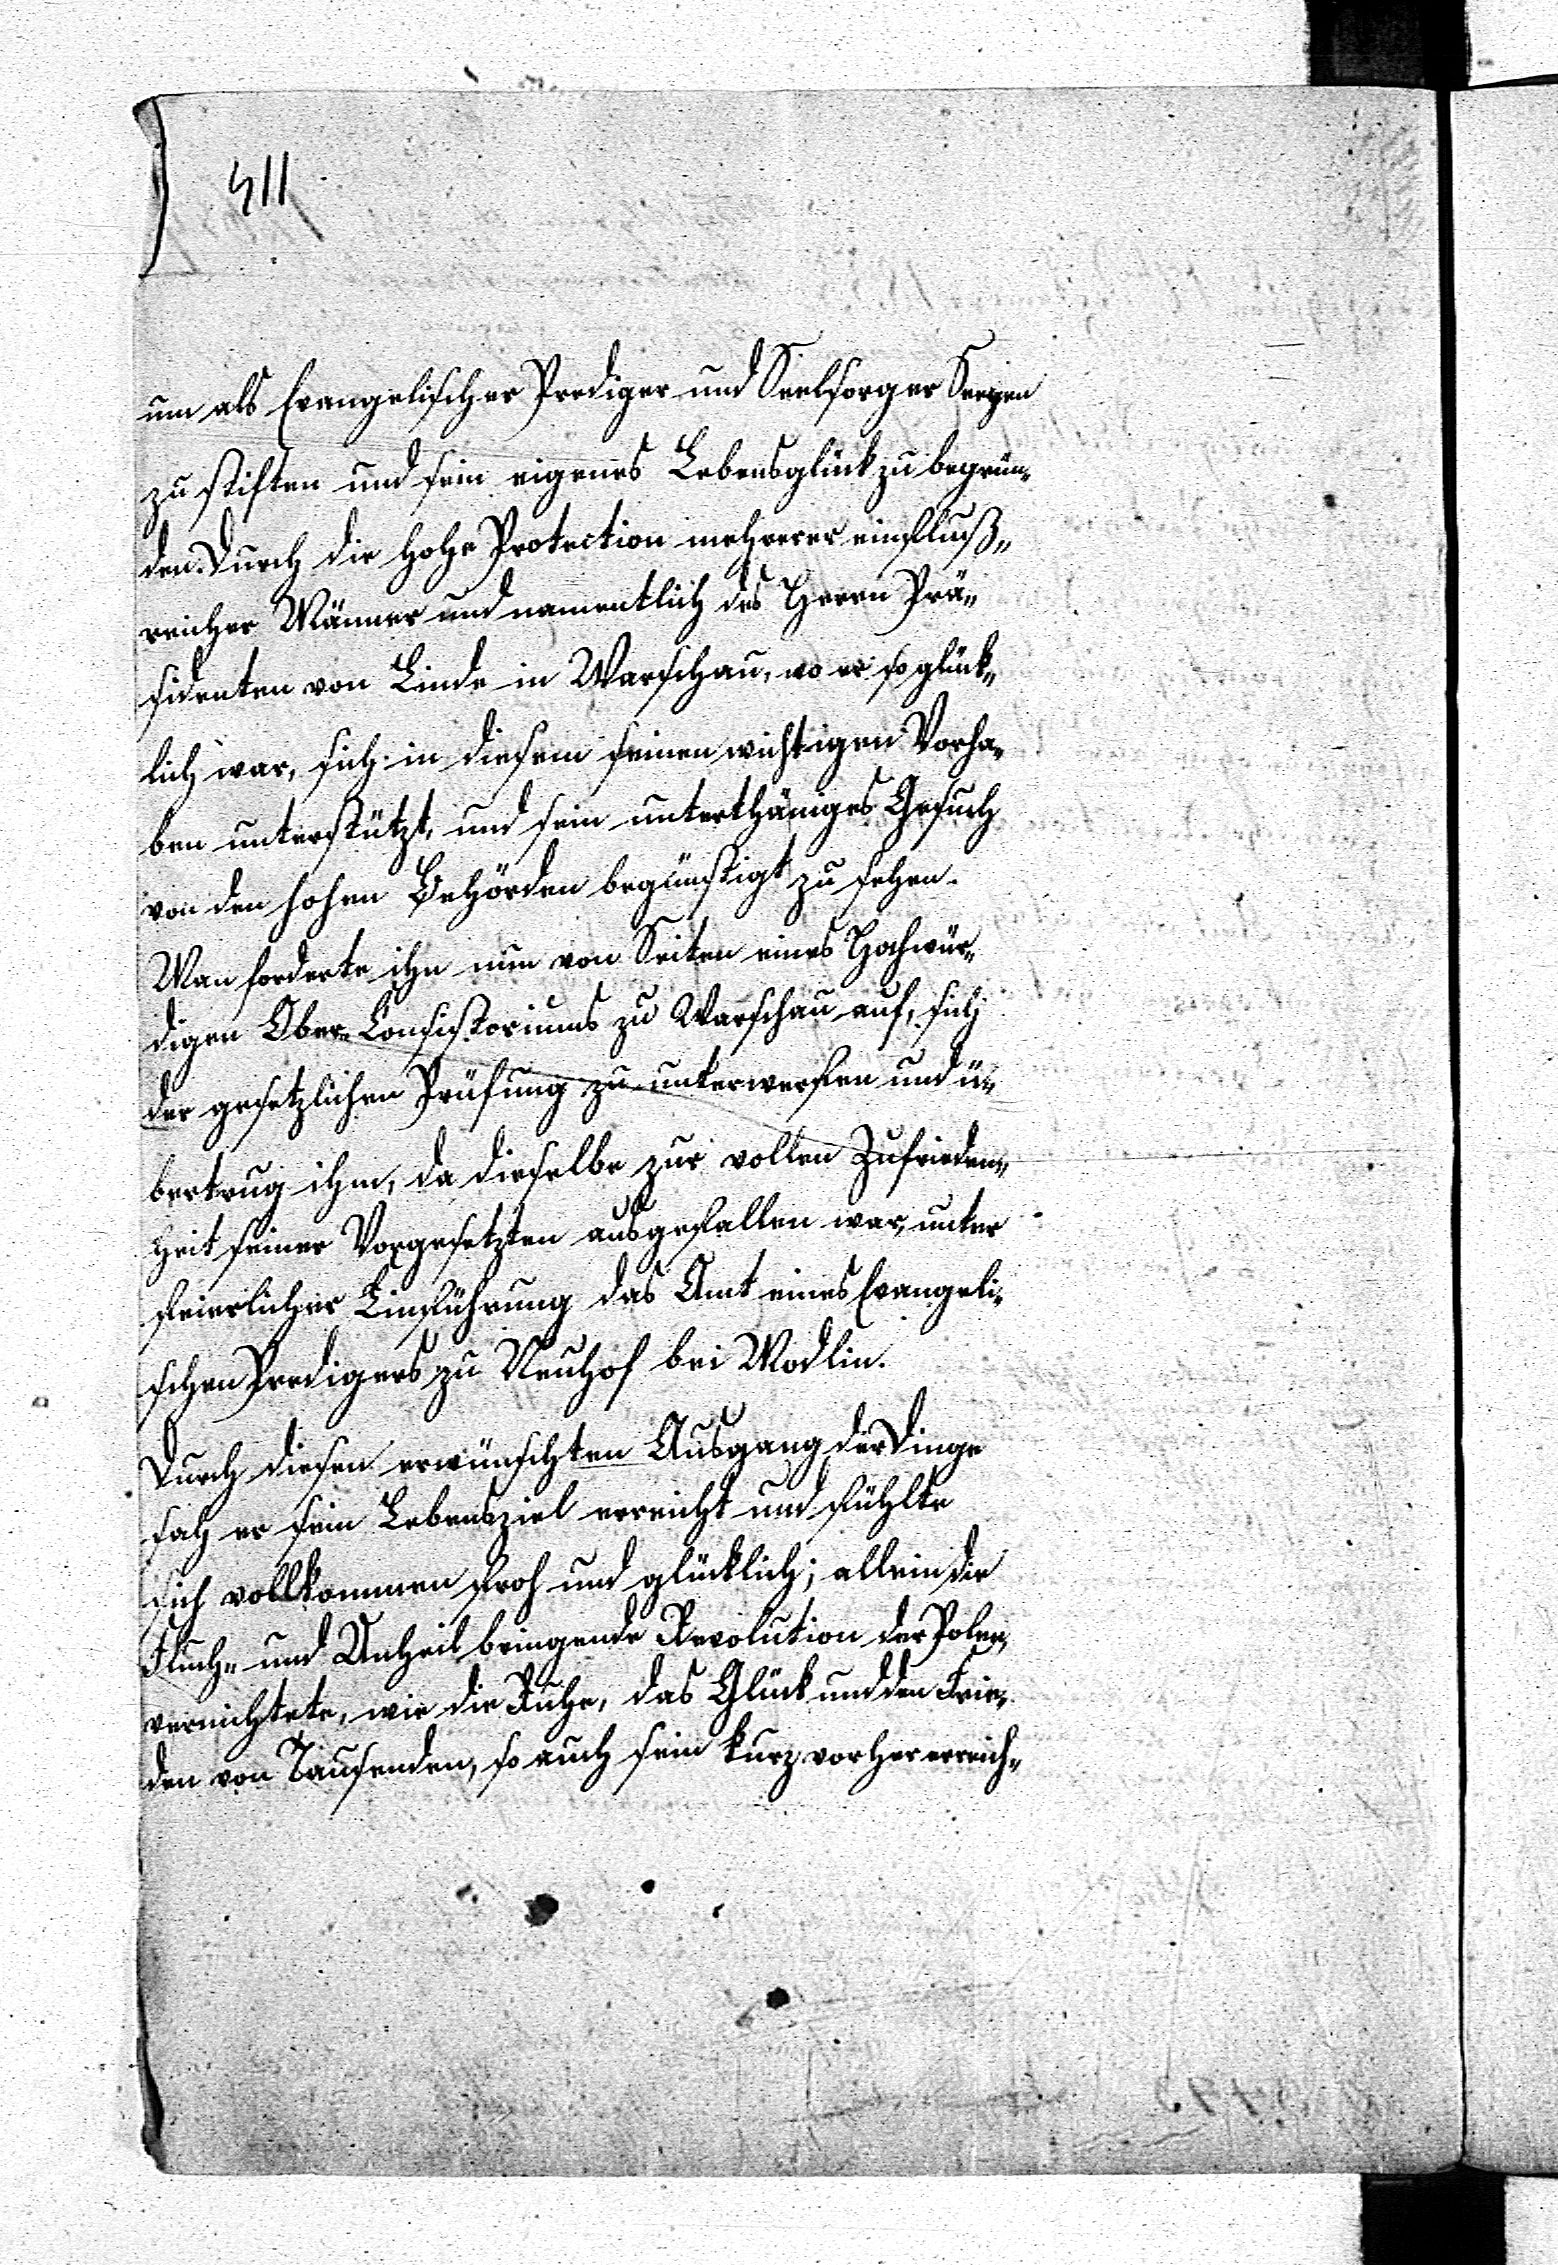 511
um als Evangelischer Prediger und Seelsorger Seegen
zu stiften und sein eigenes Lebensglück zu begrün-
den. Durch die hohe Protection mehrerer einfluß-
reicher Männer und namentlich des Herrn Prä-
sidenten von Linde in Warschau, wo er so glück-
lich war, sich in diesem seinen wichtigen Vorha-
ben unterstützt, und sein unterthäniges Gesuch
von den hohen Behörden begünstigt zu sehen.
Man forderte ihn nun von Seiten eines Hochwür-
digen Ober-Consistoriums zu Warschau auf, sich
der gesetzlichen Prüfung zu unterwerfen und ü-
bertrug ihm, da dieselbe zur vollen Zufrieden-
heit seiner Vorgesetzten ausgefallen war, unter
feierlicher Einführung das Amt eines Evangeli-
schen Predigers zu Neuhof bei Modlin.
Durch diesen erwünschten Ausgang der Dinge
sah er sein Lebensziel erreicht und fühlte
sich vollkommen froh und glücklich; allein die
Fluch- und Unheil bringende Revolution der Polen,
vernichtete, wie die Ruhe, das Glück und den Frie-
den von Tausenden, so auch sein kurz vorher erreich-